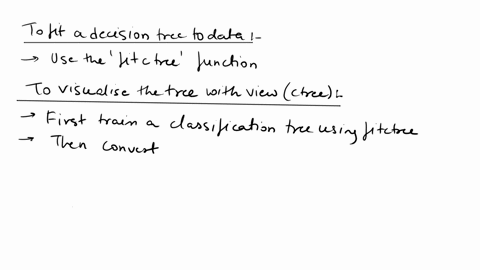 To fit a decision tree to data :-
→ Use the 'fitctree' function
To visualise the tree with view (ctree) :-
→ First train a classification tree using fitctree
→ Then convert